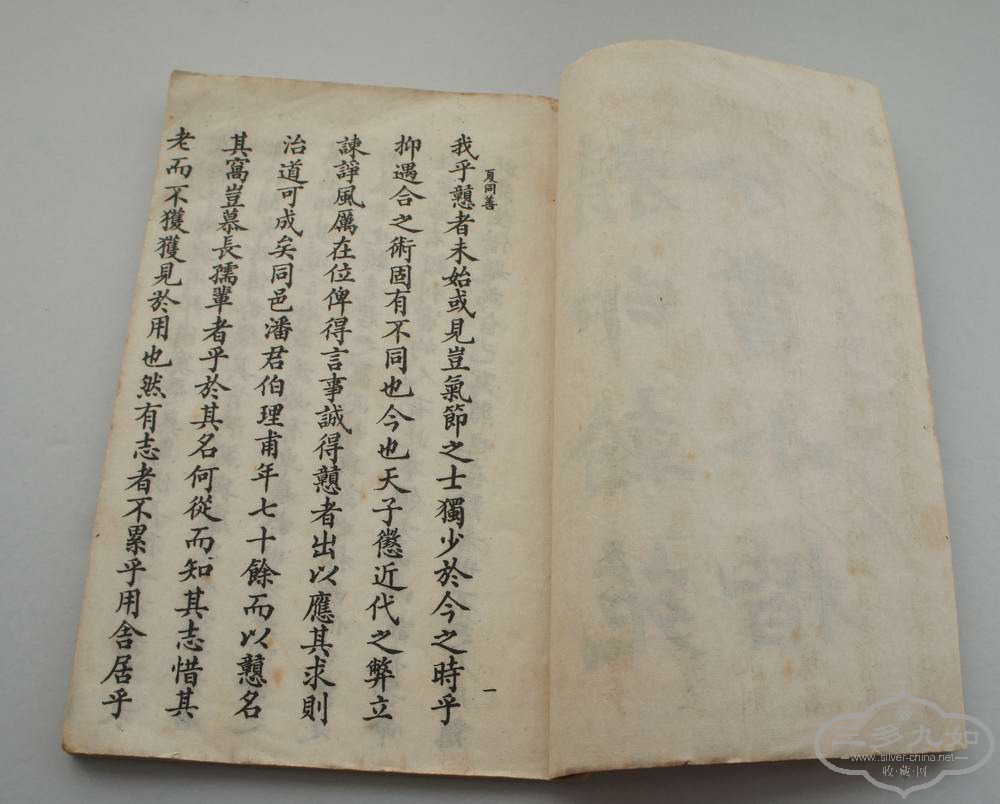 夏同善
我乎戇者未始或見豈氣節之士獨少於今之時乎
抑遇合之術固有不同也今也天子懲近代之弊立
諫諍風厲在位俾得言事誠得戇者出以應其求則
治道可成矣同邑潘君伯理甫年七十餘而以戇名
其窩豈慕長孺輩者乎於其名何從而知其志惜其
老而不獲獲見於用也然有志者不累乎用舍居乎
一
三多九如
www.silver-china.net
收藏网